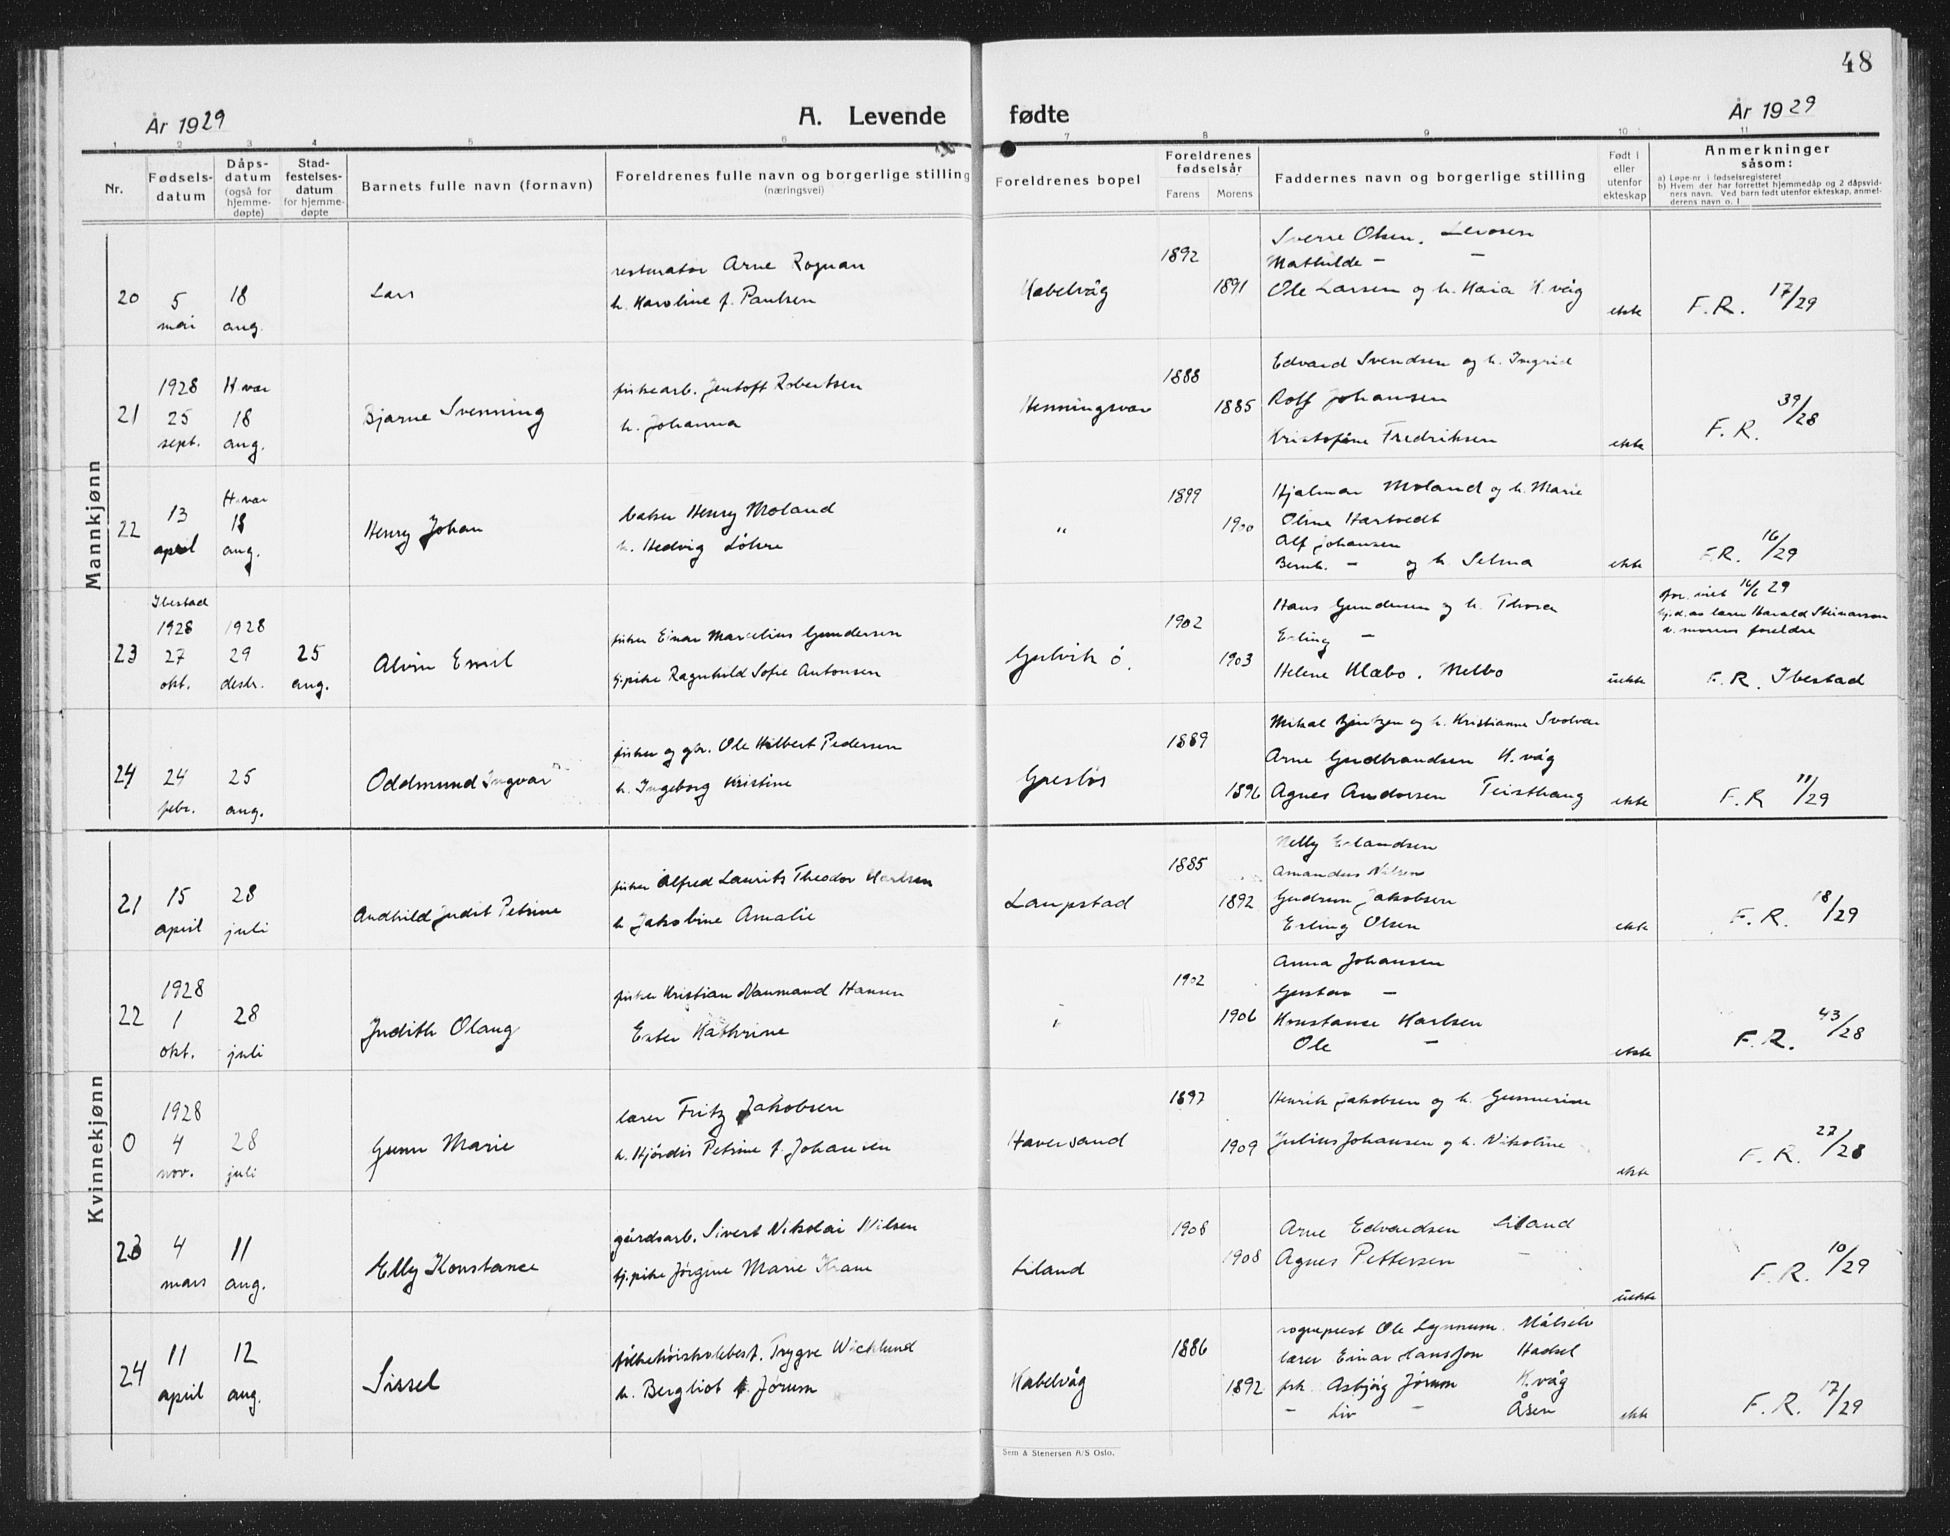 48
År 1929
A. Levende fødte
År 1929
1 2 3 4 5 6 7 8 9 10 11
Nr.
Fødsels-datum
Dåps-datum (også for hjemme-døpte)
Stad-festelses-datum for hjemme-døpte
Barnets fulle navn (fornavn)
Foreldrenes fulle navn og borgerlige stilling (næringsvei)
Foreldrenes bopel
Foreldrenes fødselsår
Farens Morens
Faddernes navn og borgerlige stilling
Født i eller utenfor ekteskap
Anmerkninger såsom:
a) Løpe-nr i fødselsregisteret
b) Hvem der har forrettet hjemmedåp og 2 dåpsvid-
ners navn. Ved barn født utenfor ekteskap, anmel-
derens navn o. l
Mannkjønn
20
5 mai
18 aug.
Lars
restauratør Arne Rognan
h. Karoline f. Paulsen
Kabelvåg
1892
1891
Sverre Olsen,
Mathilde – –
Ole Larsen og h. Kaia K.våg
ekte
F.R. 17/29
21
1928
25 sept.
H.vær
18 aug.
Bjarne Svenning
fiskearb. Jentoft Robertsen
h. Johanna
Henningsvær
1888
1885
Edvard Svendsen og h. Ingrid
Rolf Johansen
Kristofine Fredriksen
ekte
F.R. 39/28
22
13 april
H.vær
18 aug.
Henry Johan
baker Henry Moland
h. Hedvig Løkre
"
1899
1900
Hjalmar Moland og h. Marie
Oline Hartvedt
Alf Johansen
Bernh. – og h. Selma
ekte
F.R. 16/29
23
Ibestad
1928
27 okt.
1928
29 desbr.
25 aug.
Alvin Emil
fisker Einar Marcelius Gundersen
tj.pike Ragnhild Sofie Antonsen
Gulvik ø.
1902
1903
Hans Gundersen og h. Thora
Erling –
Helene Klæbo. Melbo
uekte
for. viet 16/6 29
hj.d. av lærer Harald Steinarson
v. morens foreldre
F.R. Ibestad
24
24 febr.
25 aug.
Oddmund Ingvar
fisker og gbr. Ole Hilbert Pedersen
h. Ingeborg Kristine
1889
1896
Mikal Bentzen og h. Kristianne Svolvær
Arne Gudbrandsen K.våg
Agnes Andorsen Teisthaug
ekte
F.R 11/29
Kvinnekjønn
21
15 april
28 juli
Audhild Judit Petrine
fisker Alfred Laurits Theodor Karlsen
h Jakobine Amalie
Laupstad
1885
1892
Nelly Erlandsen
Amandus Nilsen
Gudrun Jakobsen
Erling Olsen
ekte
F.R. 18/29
22
1928
1 okt.
28 juli
Judith Olaug
fisker Kristian Naumand Hansen
Ester Kathrine
"
1902
1906
Anna Johansen
Gustav –
Konstanse Karlsen
Ole –
ekte
F.R. 43/28
0
1928
4 nov.
28 juli
Gunn Marie
lærer Fritz Jakobsen
h. Hjørdis Petrine f. Johansen
Haversand
1897
1909
Henrik Jakobsen og h. Gunnerine
Julius Johansen og h. Nikoline
ekte
F.R. 27/28
23
4 mars
11 aug.
Elly Konstance
gårdsarb. Sivert Nikolai Nilsen
tj.pike Jørgine Marie Krane
Liland
1908
1908
Arne Edvardsen Liland
Agnes Pettersen –
uekte
F.R. 10/29
24
11 april
12 aug.
Sissel
folkehøiskolebest. Trygve Wicklund
h. Bergliot f. Jørum
Kabelvåg
1886
1892
sogneprest Ole Lynnum. Målselv
lærer Einar Hansson Hadsel
frk. Asbjørg Jørum K.våg
– Liv – Åsen
ekte
F.R. 17/29
Sem & Stenersen A/S Oslo.